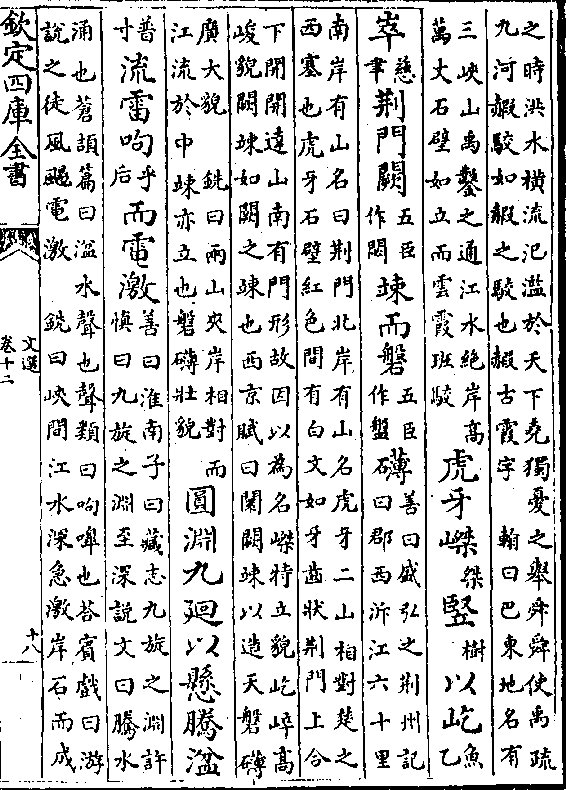 之時洪水横流汜濫於天下堯獨憂之舉舜舜使禹疏
九河赮駮如赮之駮也赮古霞字 翰曰巴東地名有
三峽山禹鑿之通江水絶岸高
萬丈石壁如立而雲霞班駮
虎牙嵥桀豎樹以屹魚乙
崒慈聿荆門闕五臣作竦而磐五臣作盤礴善曰盛弘之荆州記
曰郡西泝江六十里
南岸有山名曰荆門北岸有山名虎牙二山相對楚之
西塞也虎牙石壁紅色間有白文如牙齒狀荆門上合
下開開達山南有門形故因以為名嵥特立貌屹崒髙
峻貌闕竦如闕之竦也西京賦曰圜闕竦以造天磐礴
廣大貌 銑曰兩山夾岸相對而
江流於中竦亦立也磐礴壯貌
圓淵九廻以懸騰湓
普寸流雷呴乎后而電激善曰淮南子曰藏志九旋之淵許
慎曰九旋之淵至深說文曰騰水
涌也蒼頡篇曰湓水聲也聲類曰呴嘷也荅賓戲曰游
說之徒風颺電激 銑曰峽間江水深急激岸石而成
欽定四庫全書
文選
卷十二
十八